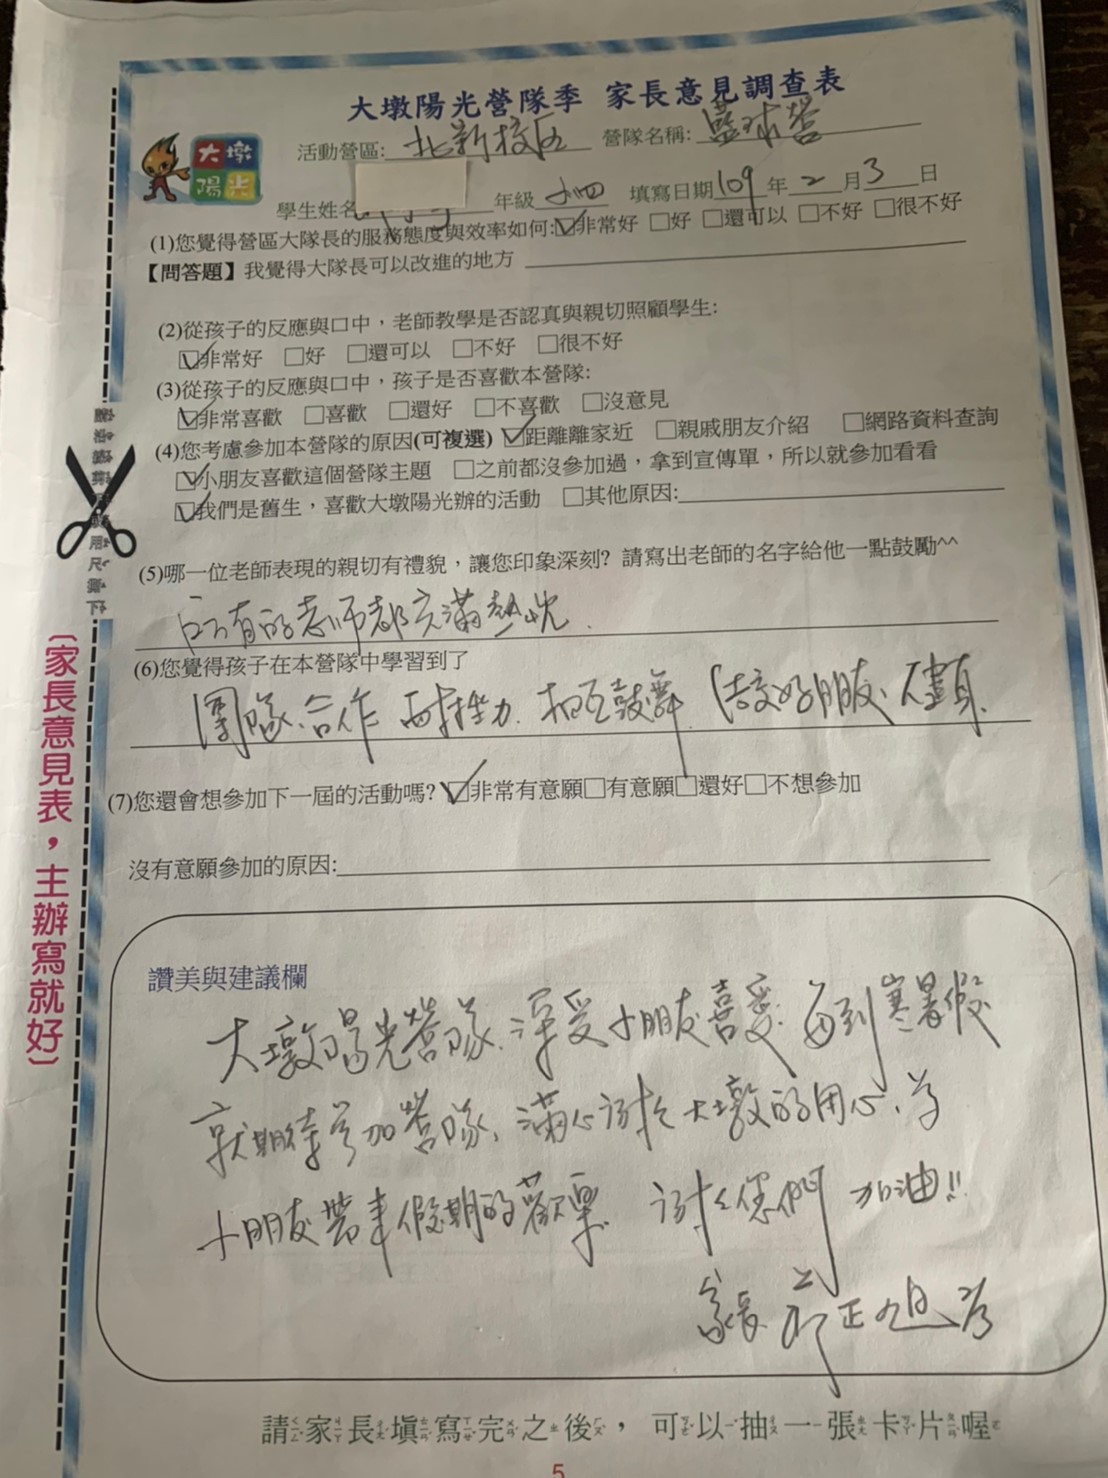 大墩陽光營隊季 家長意見調查表
大墩陽光
活動營區: 北新校區 營隊名稱: 藍球營
學生姓名 年級 小四 填寫日期109年2月3日
(1)您覺得營區大隊長的服務態度與效率如何:☑非常好 □好 □還可以 □不好 □很不好
【問答題】我覺得大隊長可以改進的地方
(2)從孩子的反應與口中，老師教學是否認真與親切照顧學生:
☑非常好 □好 □還可以 □不好 □很不好
(3)從孩子的反應與口中，孩子是否喜歡本營隊:
☑非常喜歡 □喜歡 □還好 □不喜歡 □沒意見
(4)您考慮參加本營隊的原因(可複選) ☑距離離家近 □親戚朋友介紹 □網路資料查詢
☑小朋友喜歡這個營隊主題 □之前都沒參加過，拿到宣傳單，所以就參加看看
☑我們是舊生，喜歡大墩陽光辦的活動 □其他原因:
(5)哪一位老師表現的親切有禮貌，讓您印象深刻? 請寫出老師的名字給他一點鼓勵^^
所有的老師都充滿熱忱.
(6)您覺得孩子在本營隊中學習到了
團隊合作 耐挫力. 相互鼓舞. 結交好朋友. 健康.
(7)您還會想參加下一屆的活動嗎? ☑非常有意願□有意願□還好□不想參加
沒有意願參加的原因:
讚美與建議欄
大墩陽光營隊.深受小朋友喜愛.每到寒暑假
就期待參加營隊.滿心謝於大墩的用心.為
小朋友帶來假期的歡樂. 謝謝您們 加油!!
家長
請家長填寫完之後，可以抽一張卡片喔
5
〔家長意見表，主辦寫就好〕